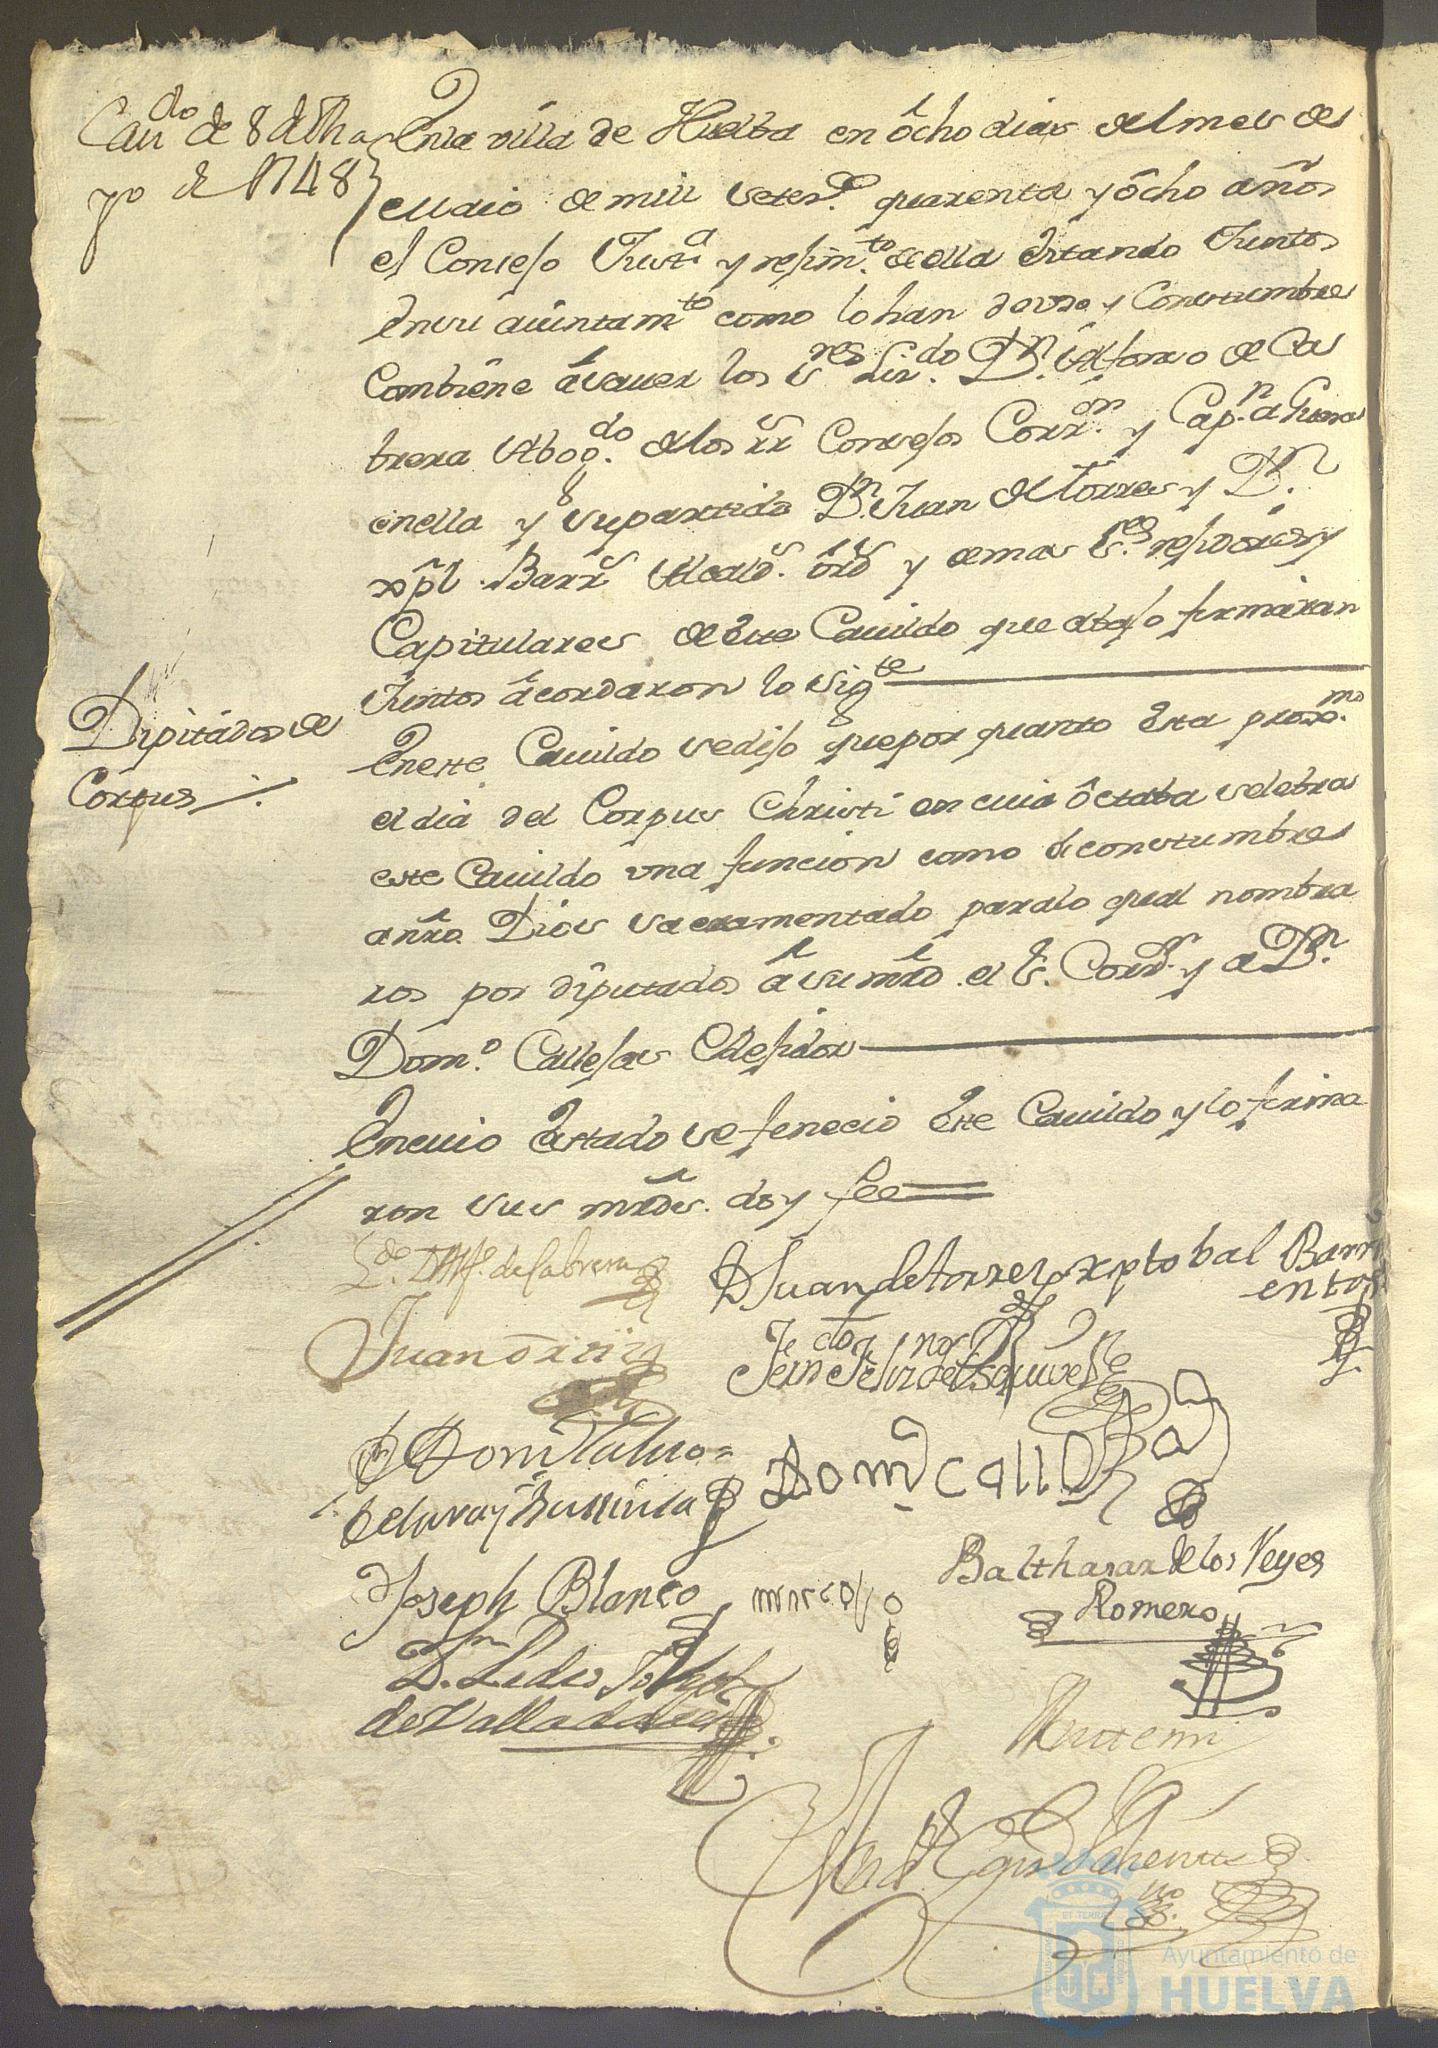 Cavdo de 8 de Ma
yo de 1748
En la villa de Huelba en ôcho dias del mes de
Maio de mill seteſ.os quarenta y ôcho años
el Consejo Justa y rejimto de ella estando Juntos
en su aiuntamto como lo han de uso y Constumbre
Combiene â saver los Sres Lizdo Dn Alfonso de Ca
brera Abogdo de los rr Consejos Corron y Capn a Guerra
en ella y su partido Dn Juan de Torres y Dn
xpl Barrs Alcalds ords y demas Ses rejidores y
Capitulares de este Cavildo que abajo firmaran
Juntos âcordaron lo sigte
Diputados de
Corpus
En este Cavildo se dijo que por quanto esta proxmo
el dia del Corpus Christi en cuia ôctaba selebra
este Cavildo una funcion como de constumbre
a nro Dios sacramentado para lo qual nombra
ron por diputados â su mrd el Sr Corrr y a Dn
Domo Callejas Rejidor
En cuio estado se fenecio este Cavildo y lo firma
ron sus mrds doy fee
Ldo D Alfo de Cabrera
D Juan de torres
xptobal Barri
entos
Juan
Esquivel
D Domo
Domo Callejas
D Joseph Blanco
marcos
Balthasar de los Reyes
Romero
Dn
de Valladares
Ante mi
Ayuntamiento de
HUELVA